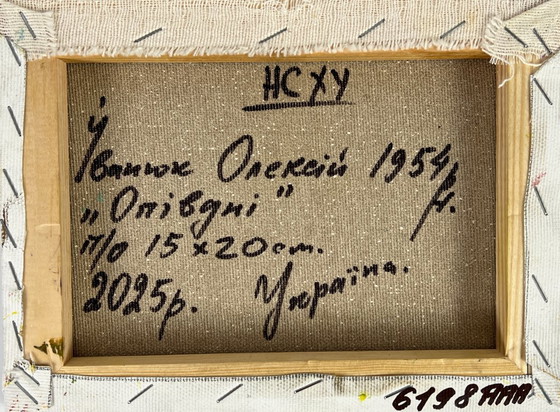 НСХУ
Іванюк Олексій 1954 р.н.
„Опівдні"
п/о 15 х 20 см.
2025р. Україна.
6198 ААА